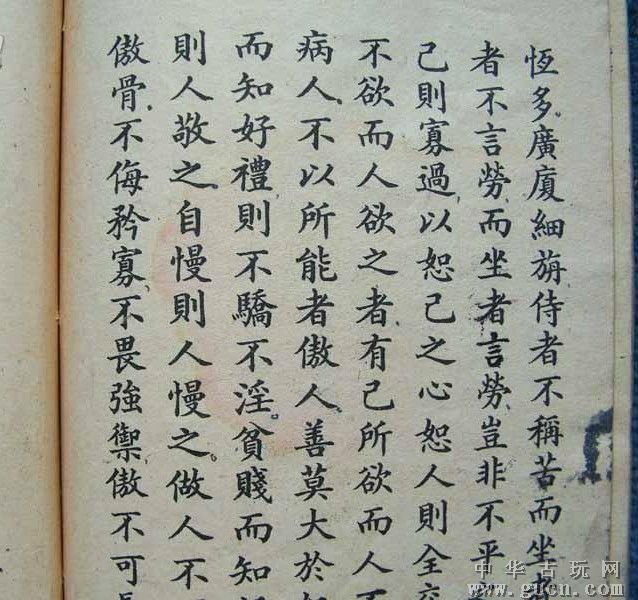 恆多。廣廈細旃侍者不稱苦而坐者
者不言勞而坐者言勞豈非不平
己則寡過以恕己之心恕人則全交
不欲而人欲之者有己所欲而人不
病人不以所能者傲人。善莫大於
而知好禮則不驕不淫。貧賤而知
則人敬之。自慢則人慢之。做人不
傲骨不侮矜寡不畏強禦傲不可長
中华古玩网
www.gucn.com